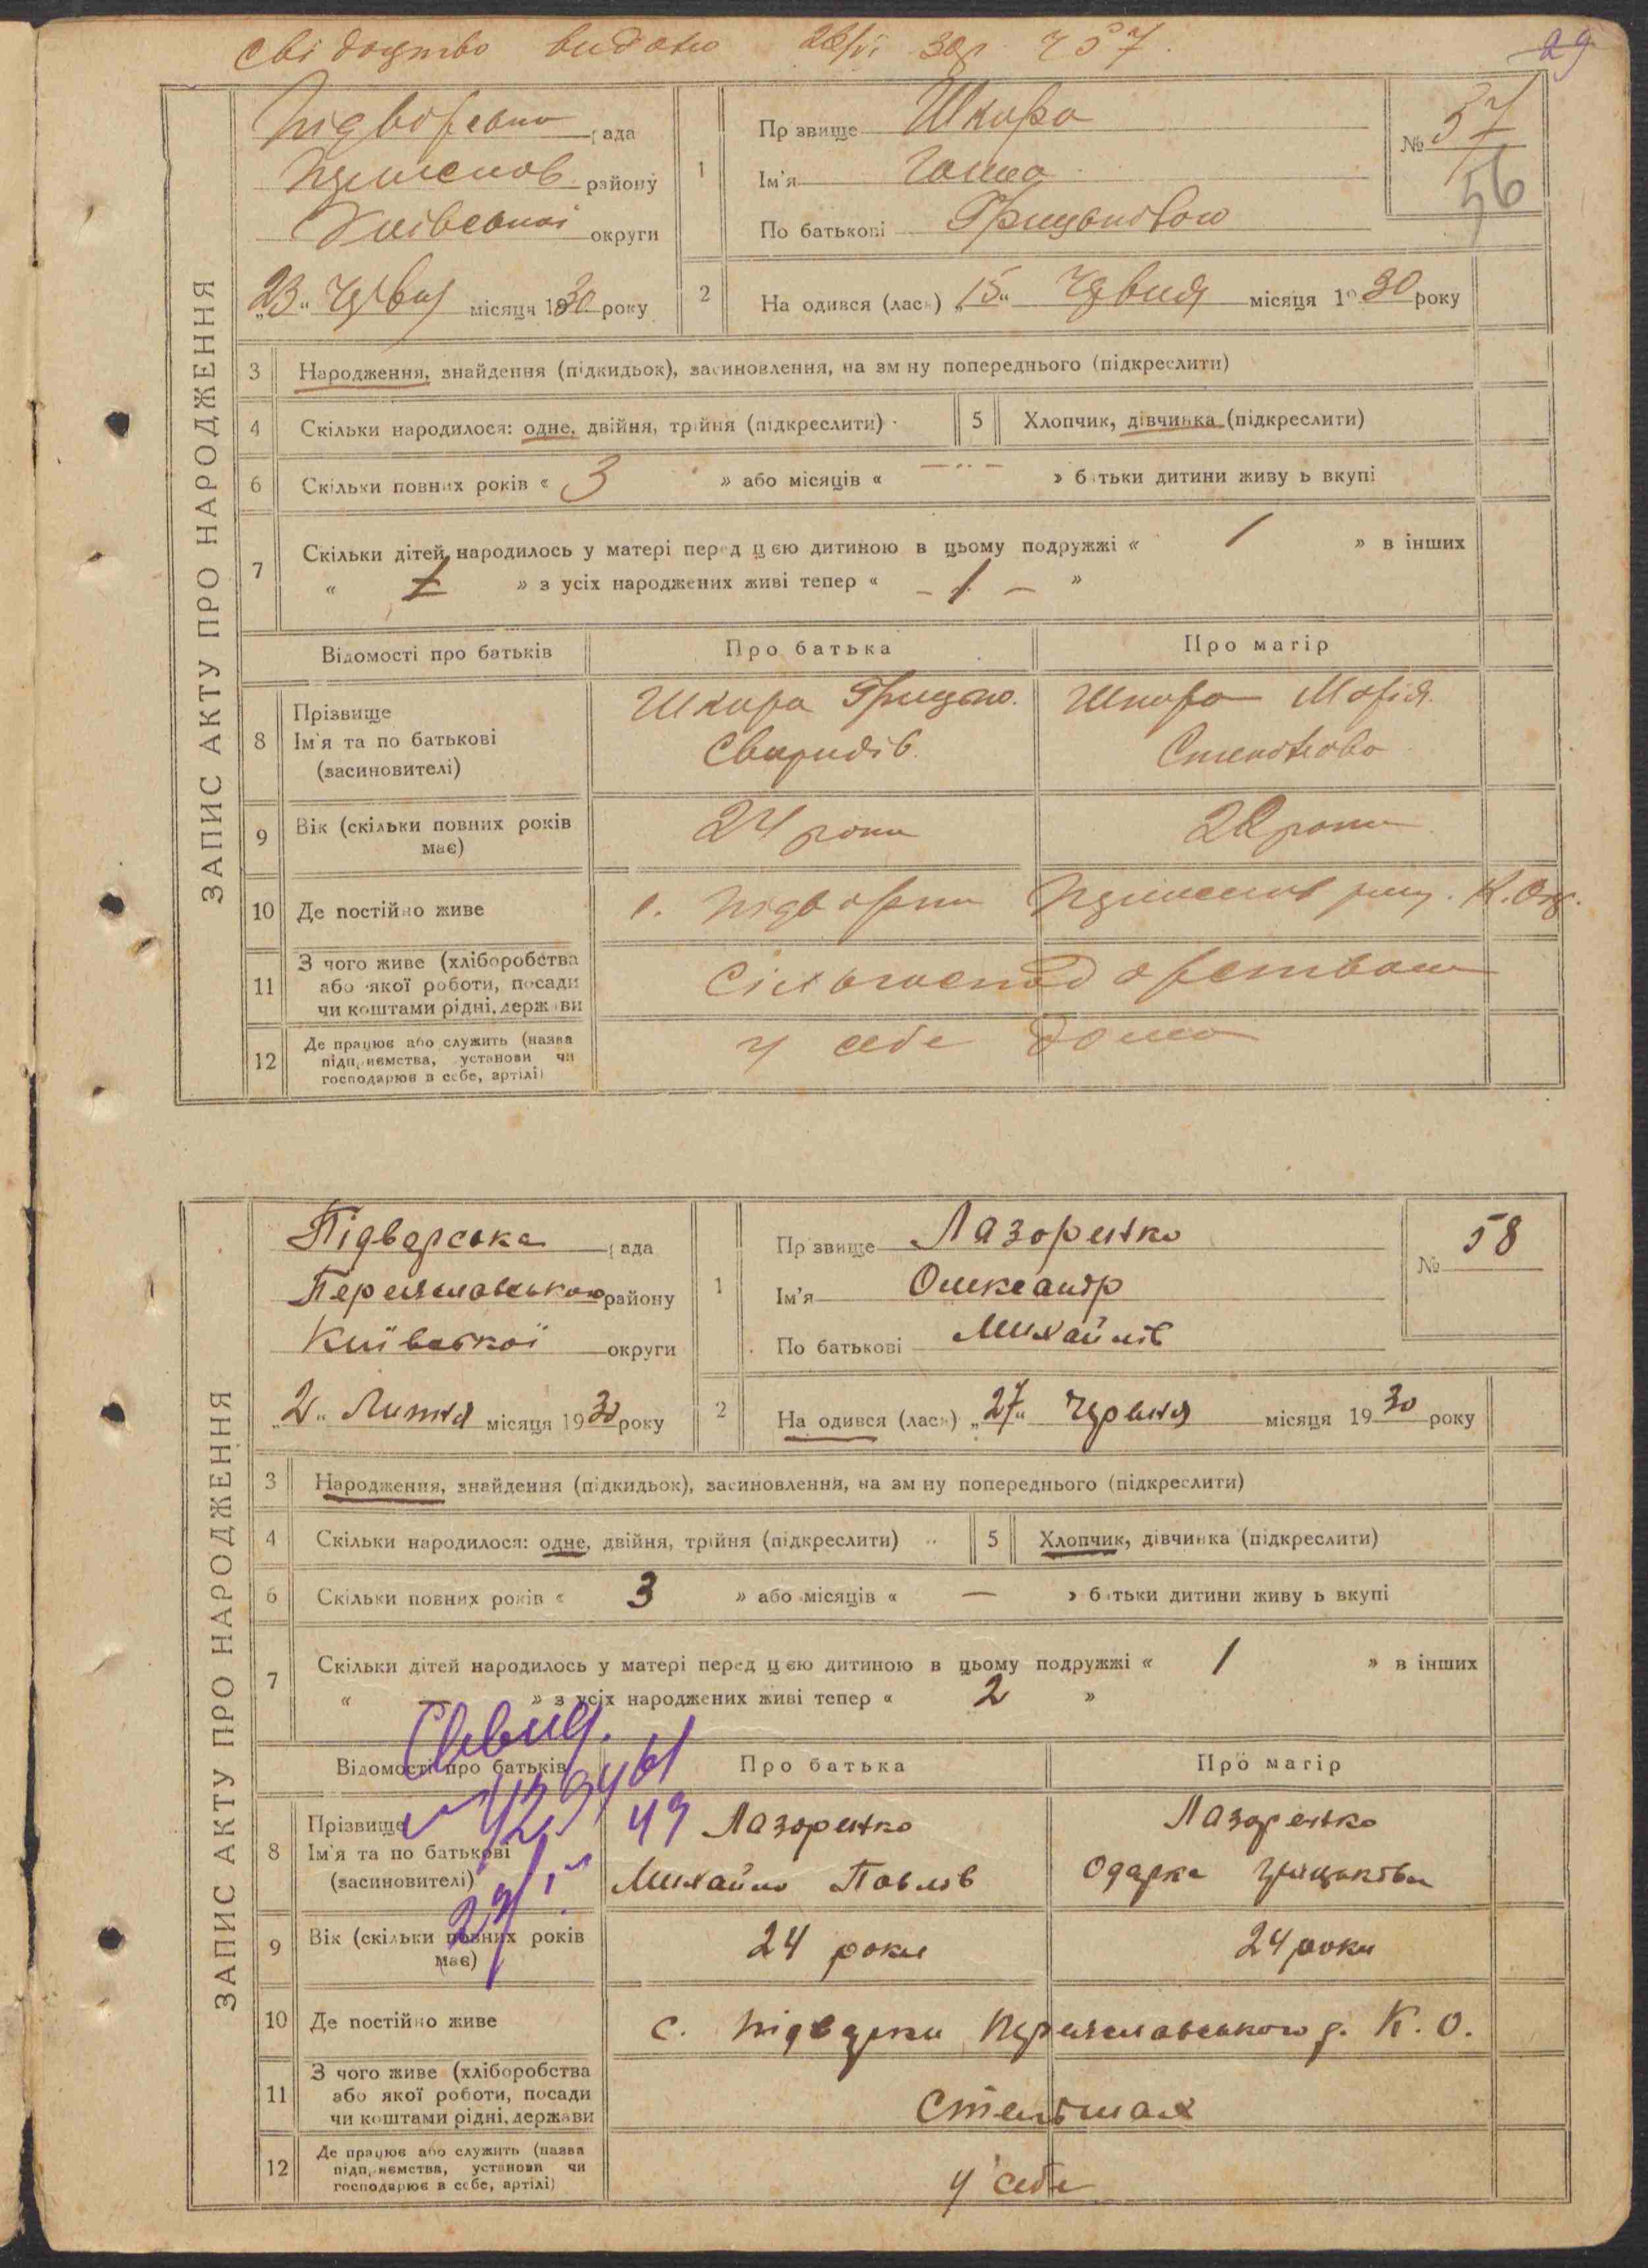 свідоцтво видано
29
ЗАПИС АКТУ ПРО НАРОДЖЕННЯ
рада
району
округи
„23“ місяця 1930 року
1
Прізвище Шкура
Ім'я Ганна
По батькові Грицьковна
№ 57
56
2 Народився (лась) „15“ Червня місяця 1930 року
3 Народження, знайдення (підкидьок), засиновлення, на зміну попереднього (підкреслити)
4 Скільки народилося: одне, двійня, трійня (підкреслити)
5 Хлопчик, дівчинка (підкреслити)
6 Скільки повних років « 3 » або місяців « — » батьки дитини живуть вкупі
7 Скільки дітей народилось у матері перед цією дитиною в цьому подружжі « 1 » в інших
« » з усіх народжених живі тепер « - 1 - »
Відомості про батьків Про батька Про матір
8 Прізвище
Ім'я та по батькові
(засиновителі)
Шкура Грицько
Свиридів
Шкура Марія
9 Вік (скільки повних років має)
24 роки
22 роки
10 Де постійно живе
с. Підварки
11 З чого живе (хліборобства
або якої роботи, посади
чи коштами рідні, держави
Сільогосподарством
12 Де працює або служить (назва
підприємства, установи чи
господарює в себе, артілі)
у себе дома
ЗАПИС АКТУ ПРО НАРОДЖЕННЯ
Підварська рада
Переяславського району
Київської округи
„2“ Липня місяця 1930 року
1
Прізвище Лазоренко
Ім'я Олександр
По батькові Михайлів
№ 58
2 Народився (лась) „27“ Червня місяця 1930 року
3 Народження, знайдення (підкидьок), засиновлення, на зміну попереднього (підкреслити)
4 Скільки народилося: одне, двійня, трійня (підкреслити)
5 Хлопчик, дівчинка (підкреслити)
6 Скільки повних років « 3 » або місяців « — » батьки дитини живуть вкупі
7 Скільки дітей народилось у матері перед цією дитиною в цьому подружжі « 1 » в інших
« — » з усіх народжених живі тепер « 2 »
Відомості про батьків Про батька Про матір
8 Прізвище
Ім'я та по батькові
(засиновителі)
Лазоренко
Михайло Павлів
Лазоренко
Одарка Грицьківна
9 Вік (скільки повних років має)
24 роки
24 роки
10 Де постійно живе
с. Підварки Переяславського р. К. О.
11 З чого живе (хліборобства
або якої роботи, посади
чи коштами рідні, держави
Стельмах
12 Де працює або служить (назва
підприємства, установи чи
господарює в себе, артілі)
у себе